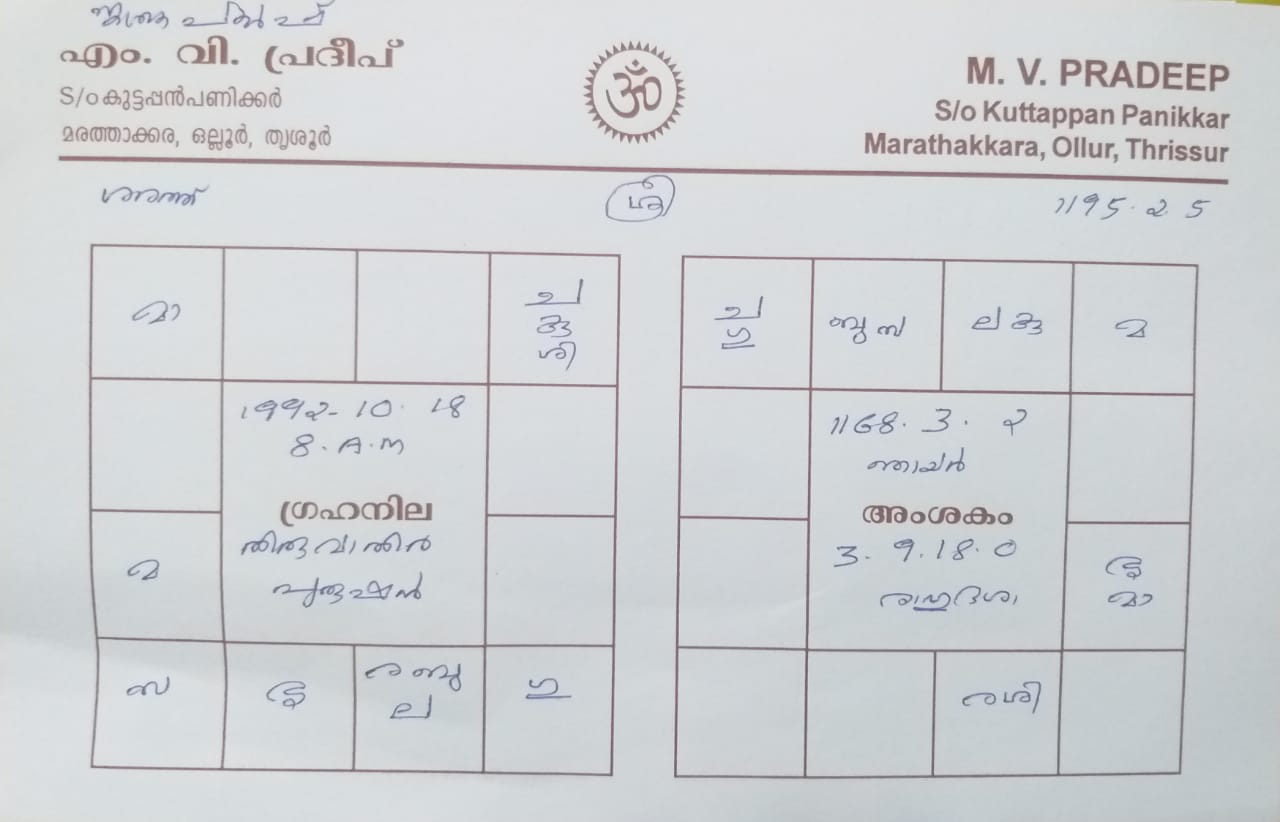 എം. വി. പ്രദീപ്
S/o കുട്ടപ്പൻപണിക്കർ
മരത്താക്കര, ഒല്ലൂർ, തൃശൂർ
ॐ
M. V. PRADEEP
S/o Kuttappan Panikkar
Marathakkara, Ollur, Thrissur
ശരത്ത്
ശ്രീ
1195.2.5
മാ
ച
കു
ശി
1992-10.18
8.A.M
ഗ്രഹനില
തിരുവാതിര
പുരുഷൻ
മ
സ
ര ബു
ല
ഗു
ച
ഗു
ബു സ
ല കു
മ
1168.3.2
ഞായർ
അംശകം
3.9.18.0
രാഹുദശാ
മാ
ര ശി